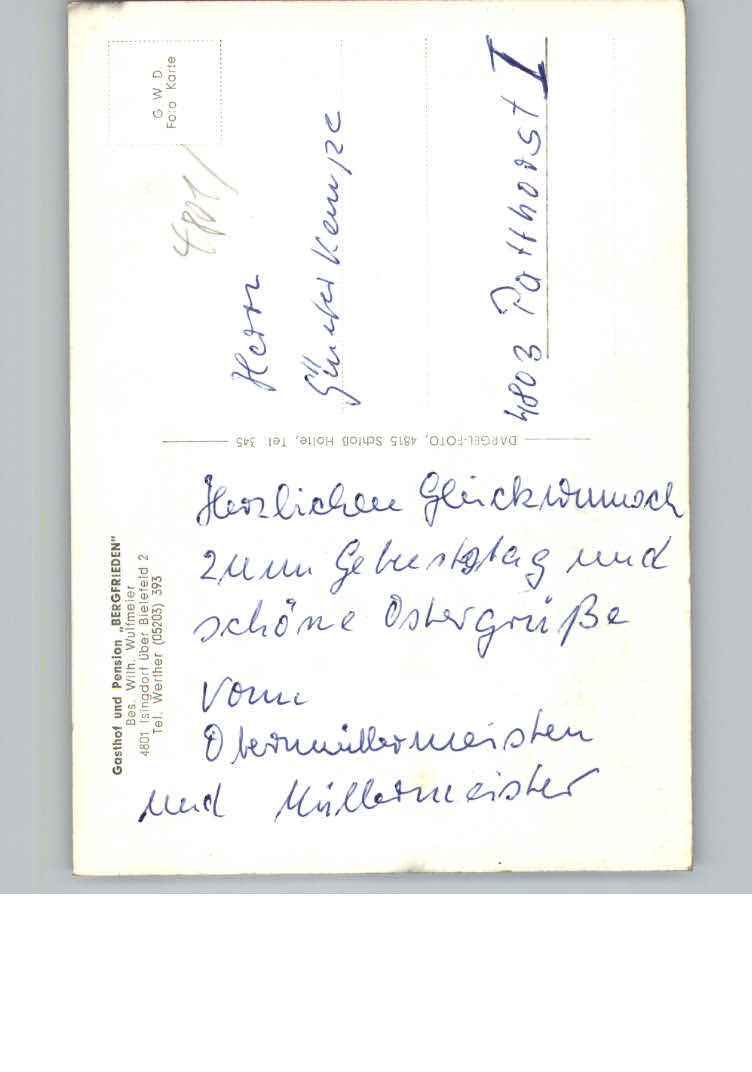 Gasthof und Pension „BERGFRIEDEN"
Bes. Wilh. Wulfmeier
4801 Isingdorf über Bielefeld 2
Tel. Werther (05203) 393
Herzlichen Glückwunsch
zum Geburtstag und
schöne Ostergrüße
vom
Obermüllermeister
und Müllermeister
DARGEL-FOTO, 4815 Schloß Holte, Tel. 345
G W D
Foto Karte
4801/
Herrn
Günter Kempe
4803 Patthorst I